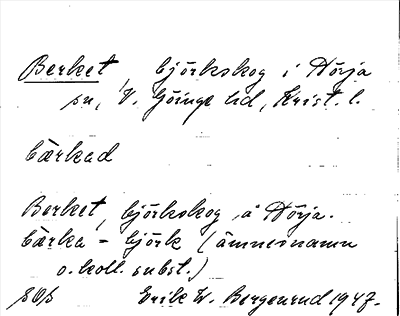 Berket, björkskog i Hörja
sn, V. Göinge hd, Krist. l.
bærkad
Berket, björkskog å Hörja.
bærka - björk (ämnesnamn
o. koll. subst.)
Erik W. Bergenrud 1947.